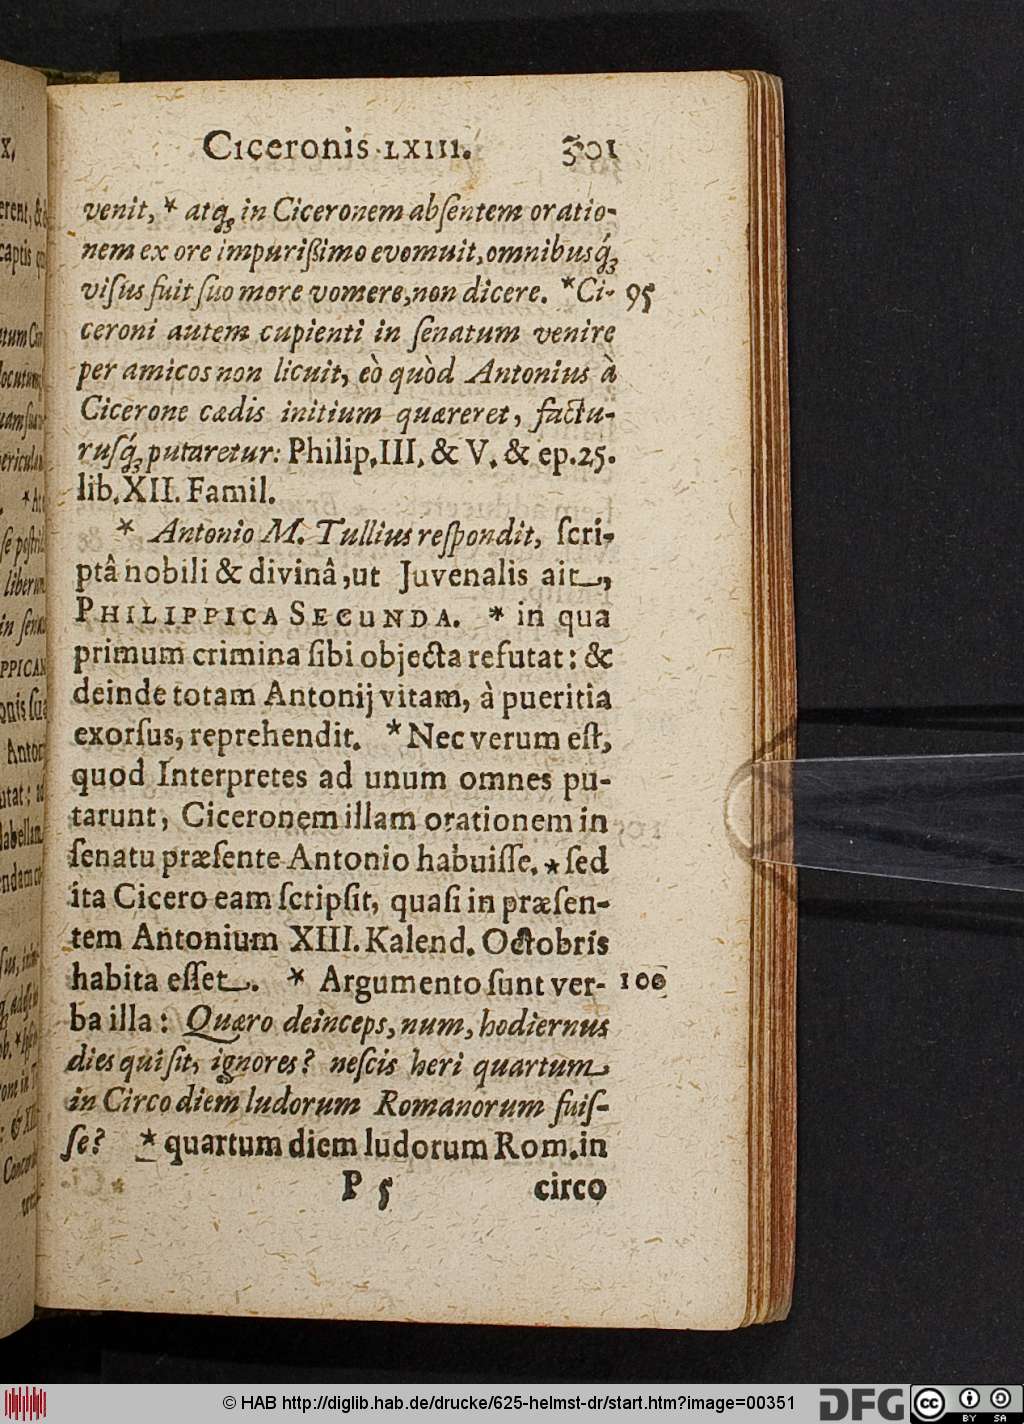 Ciceronis LXIII. 301
venit, * atq; in Ciceronem absentem oratio-
nem ex ore impurißimo evomuit, omnibusq́;
visus fuit suo more vomere, non dicere. * Ci- 95
ceroni autem cupienti in senatum venire
per amicos non licuit, eò quòd Antonius à
Cicerone cædis initium quæreret, factu-
rusq́; putaretur: Philip. III. & V. & ep. 25.
lib. XII. Famil.
* Antonio M. Tullius respondit, scri-
ptâ nobili & divinâ, ut Juvenalis ait,
PHILIPPICA SECUNDA. * in qua
primum crimina sibi objecta refutat: &
deinde totam Antonij vitam, à pueritia
exorsus, reprehendit. * Nec verum est,
quod Interpretes ad unum omnes pu-
tarunt, Ciceronem illam orationem in
senatu præsente Antonio habuisse. * sed
ita Cicero eam scripsit, quasi in præsen-
tem Antonium XIII. Kalend. Octobris
habita esset. * Argumento sunt ver- 100
ba illa: Quæro deinceps, num, hodiernus
dies qui sit, ignores? nescis heri quartum
in Circo diem ludorum Romanorum fuis-
se? * quartum diem ludorum Rom. in
P 5 circo
© HAB http://diglib.hab.de/drucke/625-helmst-dr/start.htm?image=00351
DFG
cc BY SA